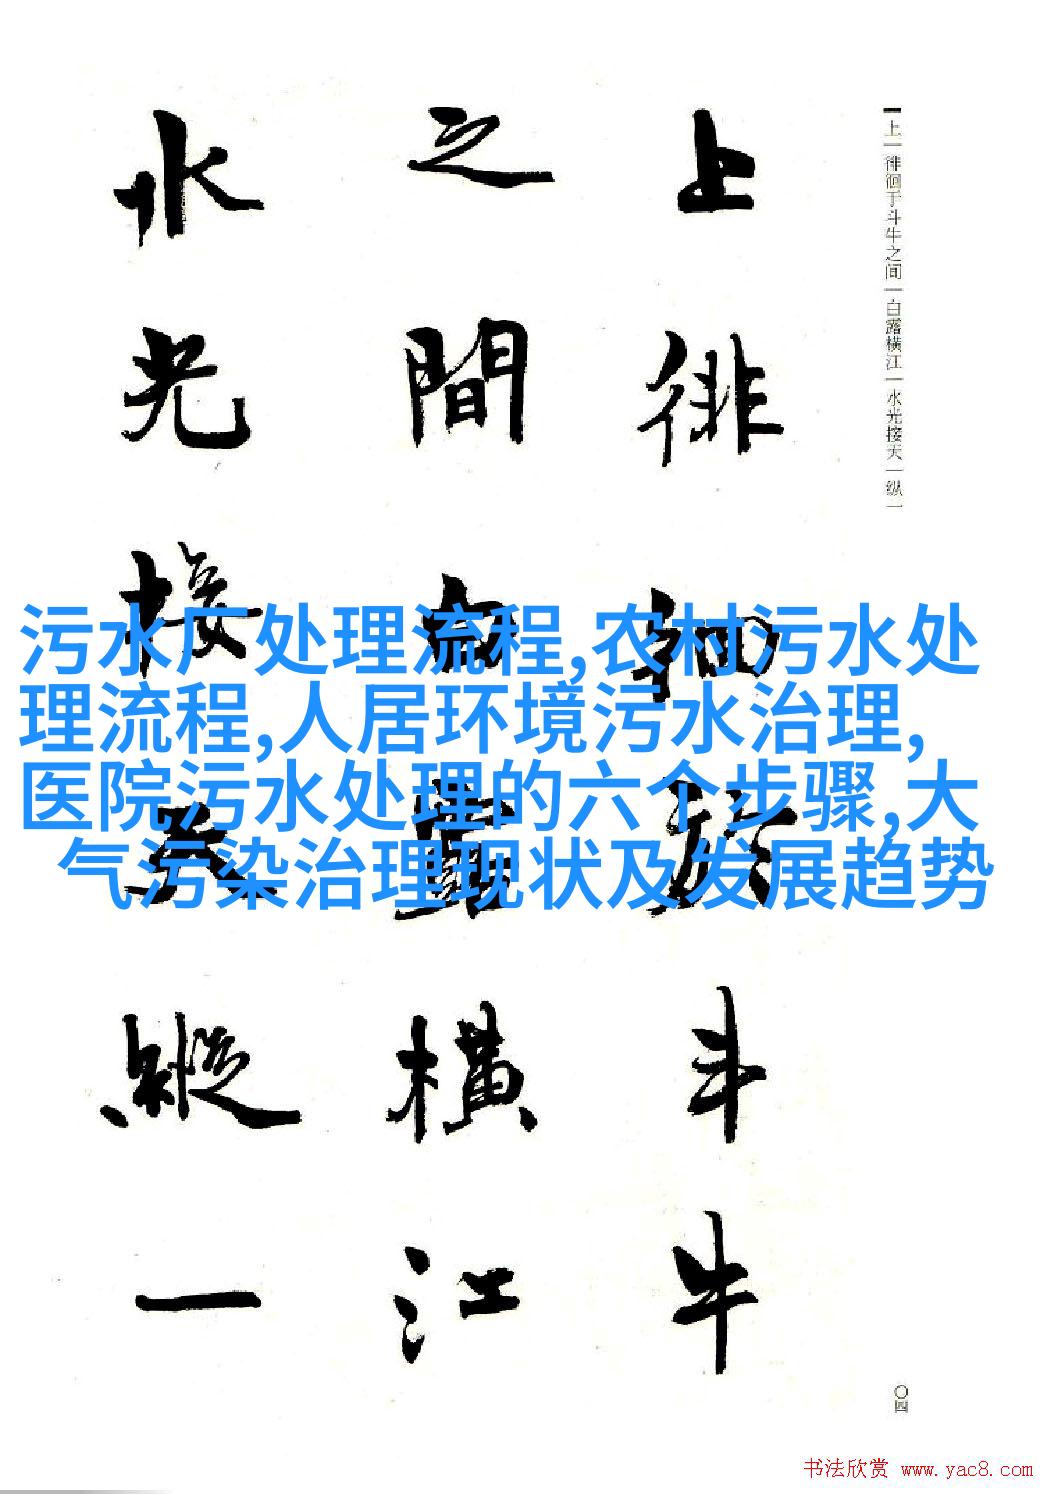 上|徘徊于斗牛之间|白露横江|水光接天|纵一
上徘徊於斗牛
之間白露橫江
水光接天縱一
污水厂处理流程,农村污水处
理流程,人居环境污水治理,
医院污水处理的六个步骤,大
气污染治理现状及发展趋势
〇四
书法欣赏 www.yac8.com